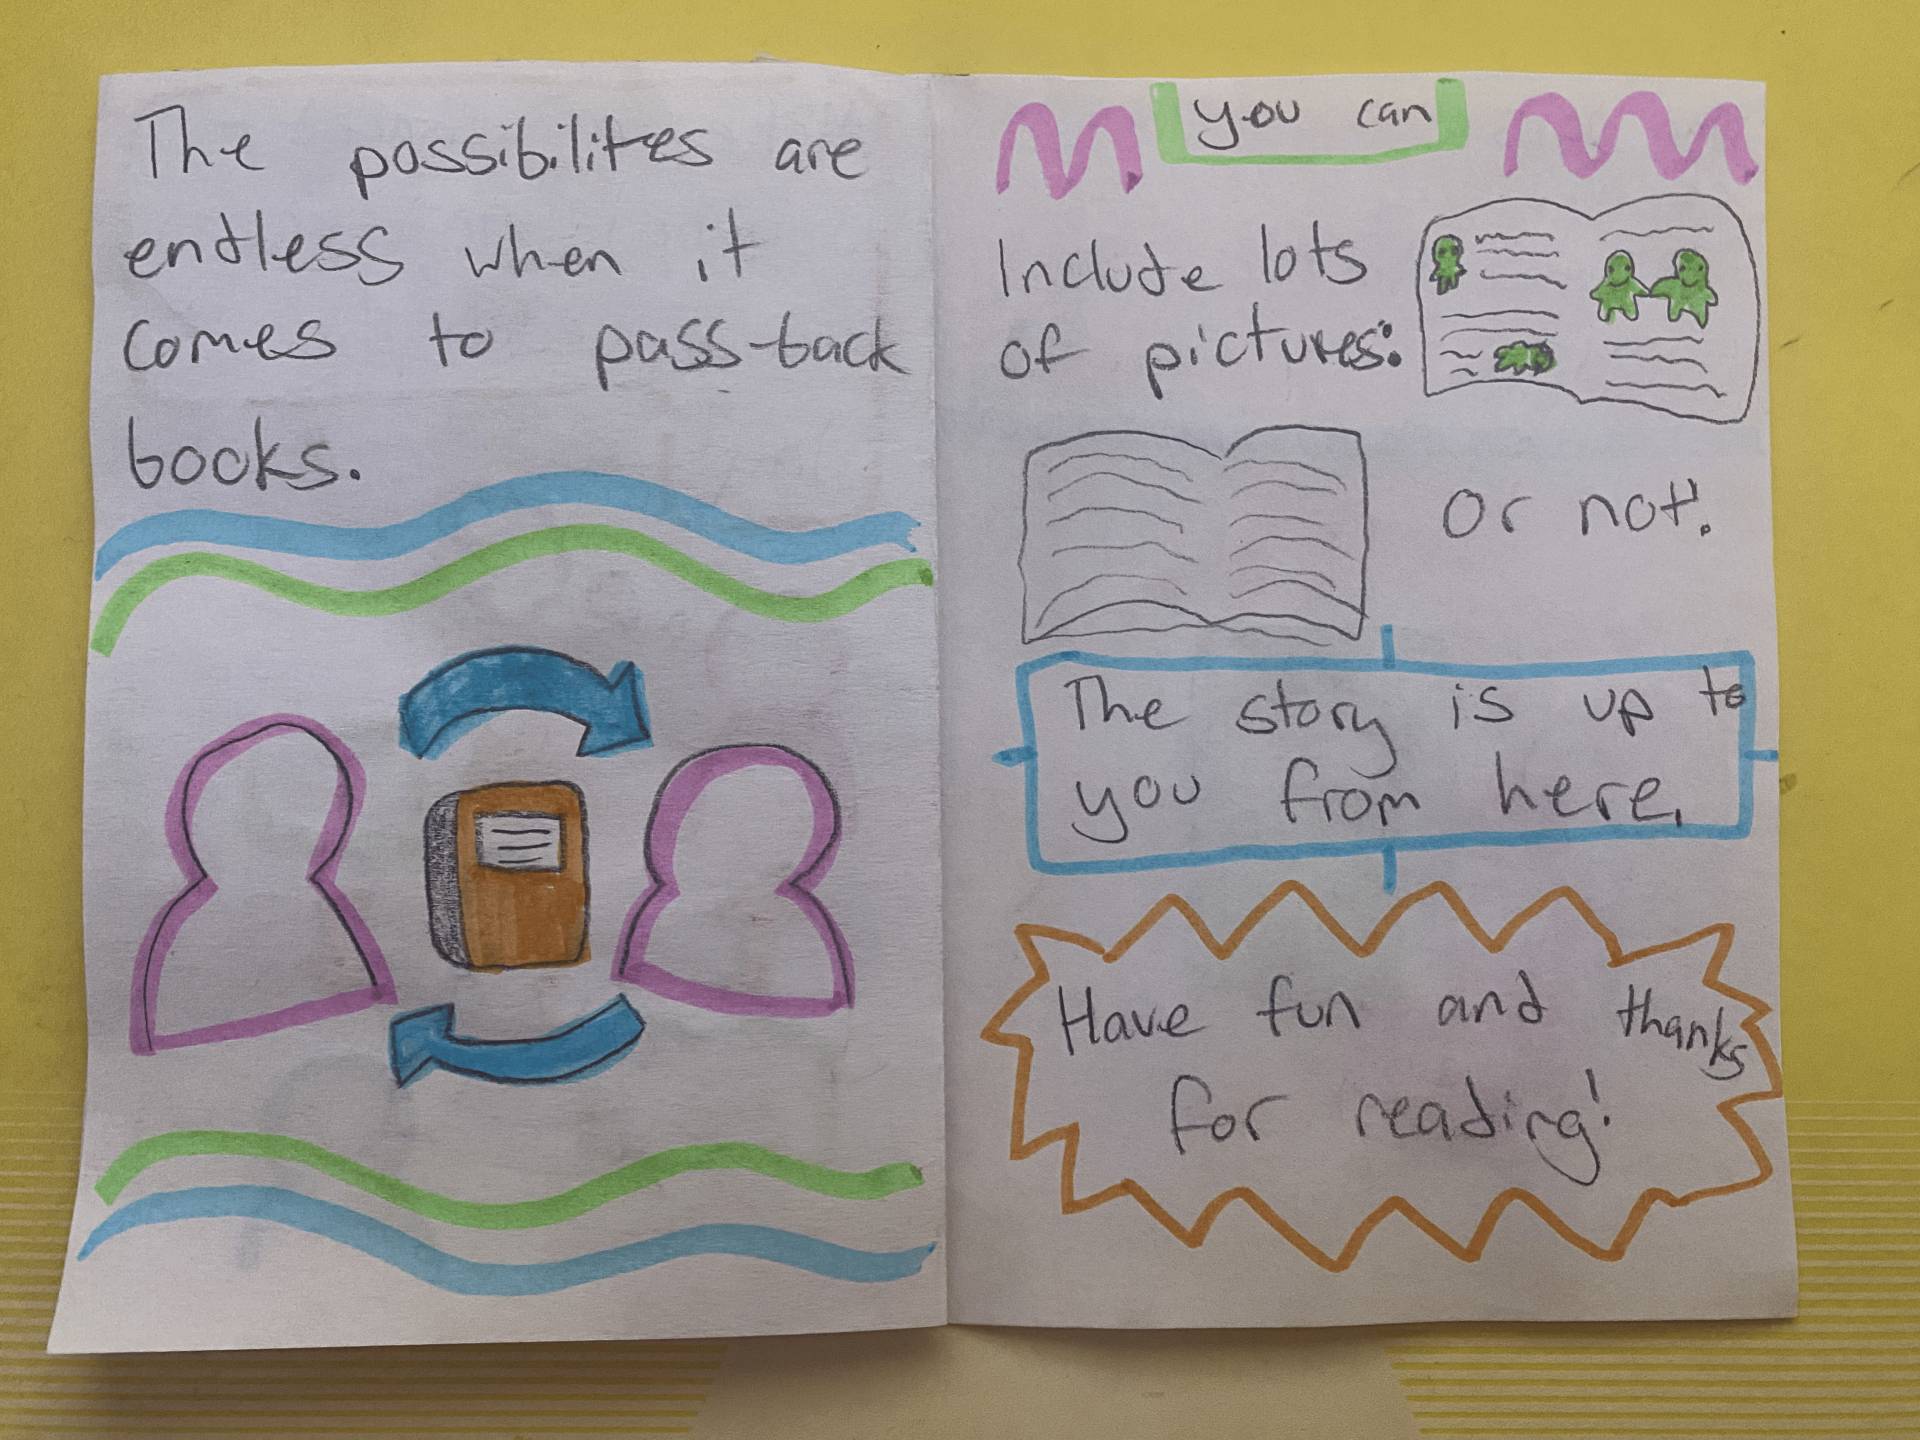 The possibilites are
endless when it
comes to pass-back
books.
you can
Include lots
of pictures:
or not!
The story is up to
you from here.
Have fun and thanks
for reading!